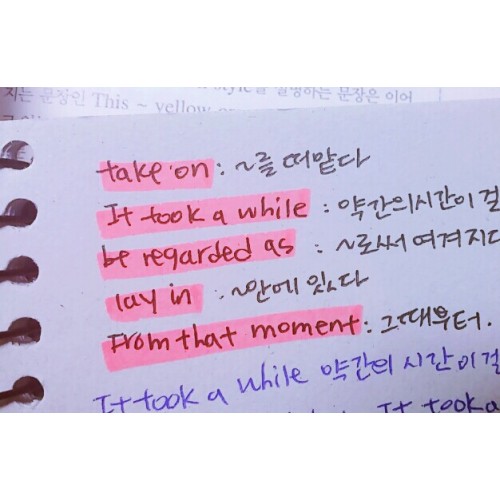 지는 문장인 This ~ yellow 설명하는 문장은 이어
take on : ~를 떠맡다
It took a while : 약간의시간이 걸
be regarded as : ~로써 여겨지다
lay in : ~안에 있다
From that moment : 그때부터.
It took a while 약간의 시간이 걸
It took a